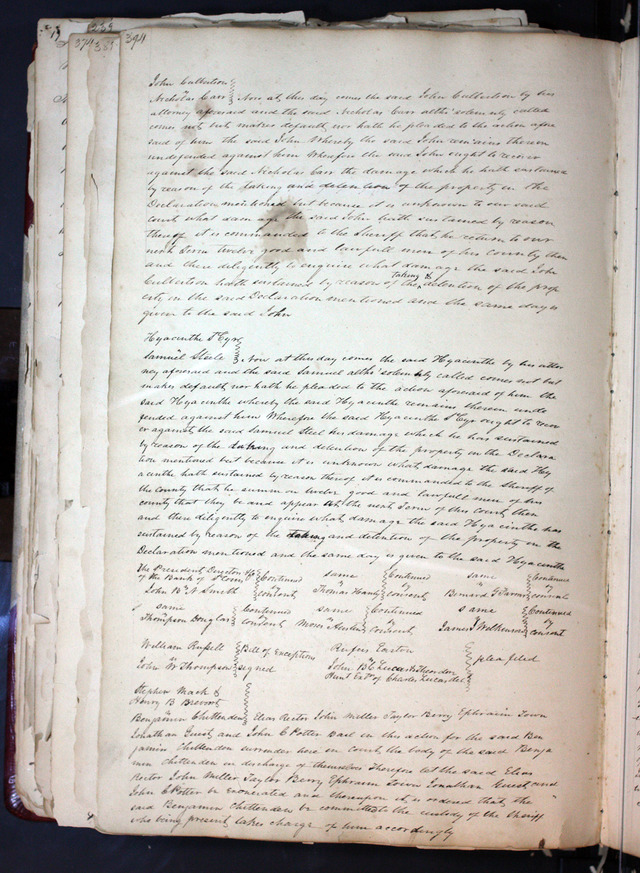 339
374 339 394
John Culbertson
vs
Nicholas Carr } Now at this day comes the said John Culbertson by his
attorney aforesaid and the said Nicholas Carr altho' solemnly called
comes not but makes default nor hath he pleaded to the action afore
said of him the said John Whereby the said John remains therein
undefended against him Wherefore the said John ought to recover
against the said Nicholas Carr the damage which he hath sustained
by reason of the taking and detention of the property in the
Declaration mentioned but because it is unknown to our said
court what damage the said John hath sustained by reason
thereof it is commanded to the Sheriff that he return to our
next Term twelve good and lawfull men of his county then
and there diligently to enquire what damage the said John
Culbertson hath sustained by reason of the taking & detention of the prop
erty in the said Declaration mentioned and the same day is
given to the said John
Hyacinthe St Cyr
vs
Samuel Steele } Now at this day comes the said Hyacinthe by his attor
ney aforesaid and the said Samuel altho' solemnly called comes not but
makes default nor hath he pleaded to the action aforesaid of him the
said Hyacinthe whereby the said Hyacinthe remains therein unde
fended against him Wherefore the said Hyacinthe St Cyr ought to recov
er against the said Samuel Steel his damage which he has sustained
by reason of the taking and detention of the property in the Declara
tion mentioned but because it is unknown what damage the said Hy
acinthe hath sustained by reason thereof it is commanded to the Sheriff of
the county that he summon twelve good and lawfull men of his
county that they be and appear at the next Term of this court then
and there diligently to enquire what damage the said Hyacinthe has
sustained by reason of the taking and detention of the property in the
Declaration mentioned and the same day is given to the said Hyacinthe
The President, Directors &c of the Bank of St Louis vs John B. N. Smith } Continued by consent
same vs Thomas Hanly } Continued by consent
same vs Bernard G Farrar } Continued by consent
same vs Thompson Douglas } Continued by consent
same vs Moses } Continued by consent
same vs James Wilkinson } Continued by consent
William Russell vs John W Thompson } Bill of Exceptions signed
Rufus Easton vs John B C Lucas & Theodore Hunt Extrs of Charles Lucas decd } plea filed
Stephen Mack &
Henry B Brevoort
vs
Benjamin Chittenden } Elias Rector John Miller Taylor Berry Ephraim Town
Jonathan Guest and John C Potter bail in this action for the said Ben
jamin Chittenden surrender here in Court the body of the said Benja
min Chittenden in discharge of themselves Therefore let the said Elias
Rector John Miller Taylor Berry Ephraim Town Jonathan Guest and
John C Potter be exonerated and thereupon it is ordered that the
said Benjamin Chittenden be committed to the custody of the Sheriff
who being present takes charge of him accordingly